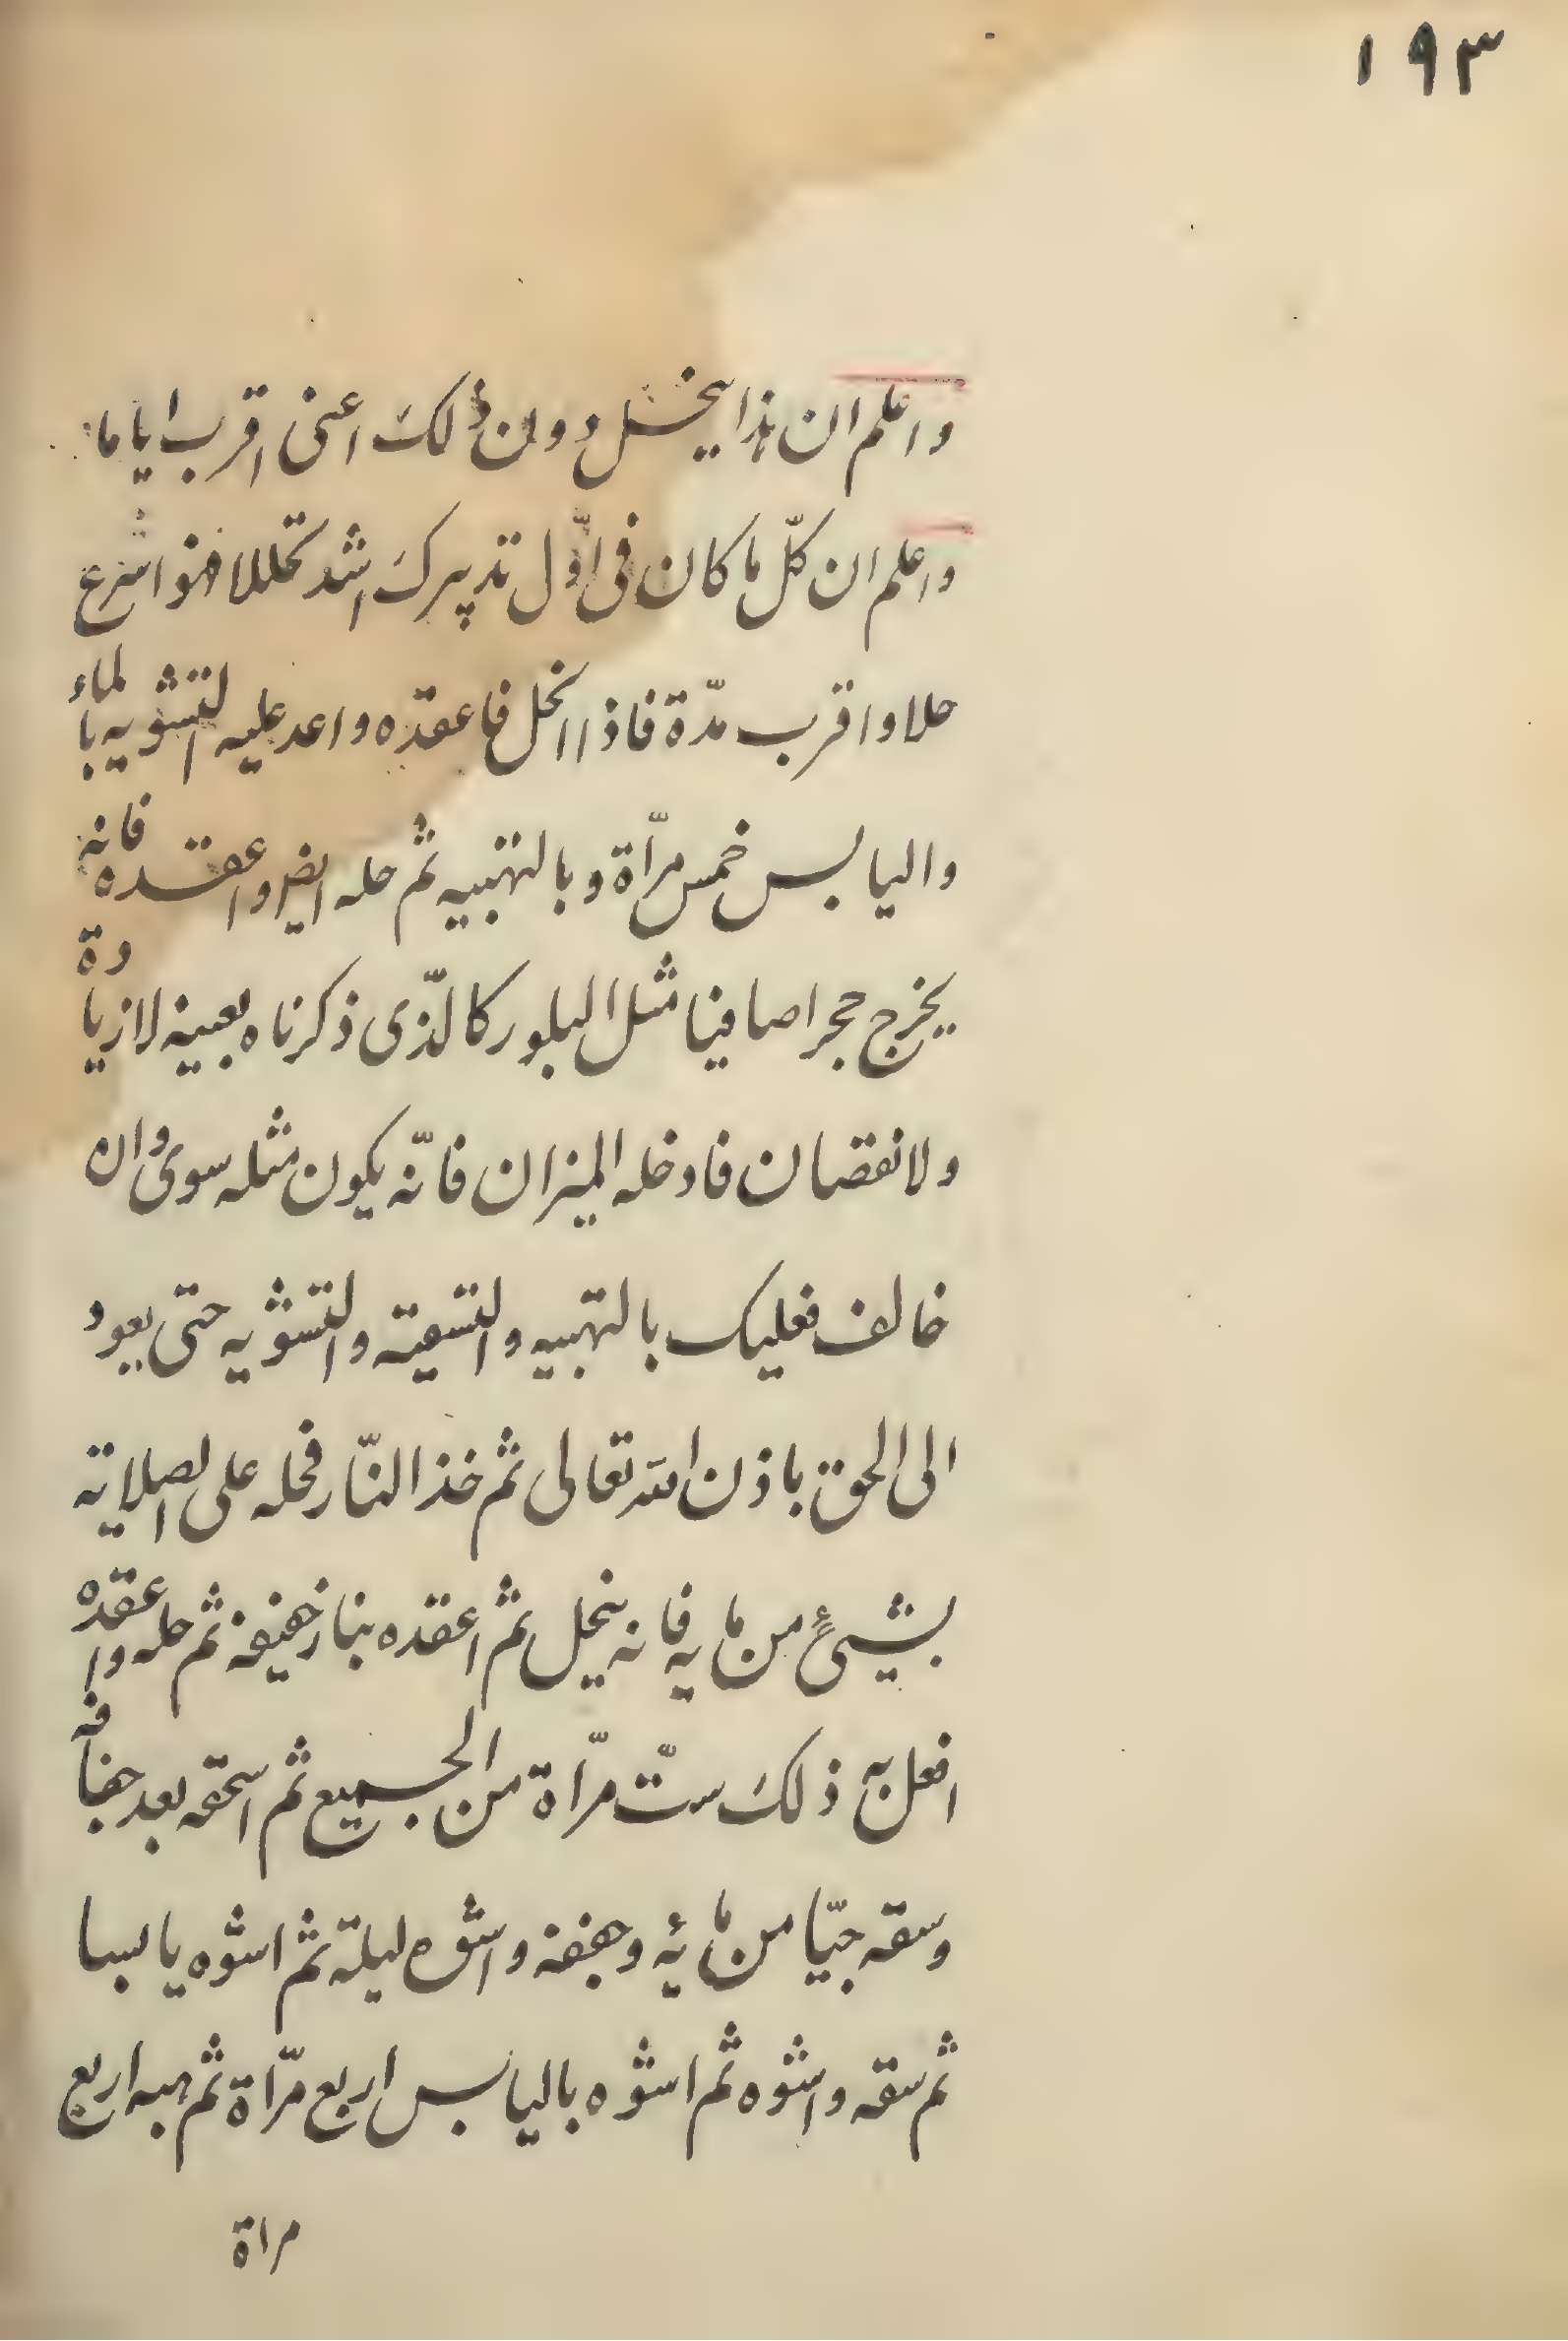 ١٩٣
واعلم ان هذا ينحل دون ذلك اعنى اقرب اياما
واعلم ان كلّ ما كان فى اوّل تدبيرك اشد تحللا فهو اسرع
حلا واقرب مدّة فاذا انحل فاعقده واعد عليه التشويه بالماء
واليابس خمس مرّاة وبالتهبيه ثم حله ايضر واعقده فانه
يخرج حجرا صافيا مثل البلور كالّذى ذكرناه بعينه لا زيادة
ولا نقصان فادخله الميزان فانّه يكون مثله سوى وان
خالف فعليك بالتهبيه والتسقيته والتشويه حتى يعود
الى الحق باذن الله تعالى ثم خذ النّار فحله على الصلايته
بشيئٍ من مايه فانه ينحل ثم اعقده بنار خفيفة ثم حله واعقده
افعل به ذلك ستّ مرّاة من الجميع ثم اسحقه بعد جفافه
وسقه جيّا من مائه وجففه واشوه ليلة ثم اشوه يابسا
ثم سقه واشوه ثم اشوه باليابس اربع مرّاة ثم هبه اربع
مراة